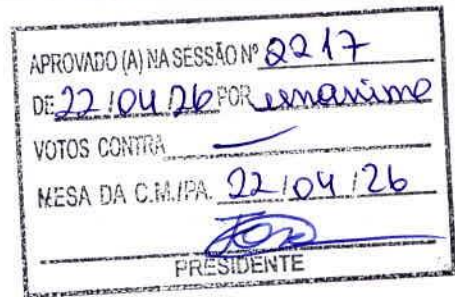 APROVADO (A) NA SESSÃO Nº 2217
DE 22 / 04 / 26 POR unanime
VOTOS CONTRA —
MESA DA C.M./PA. 22 / 04 / 26
PRESIDENTE